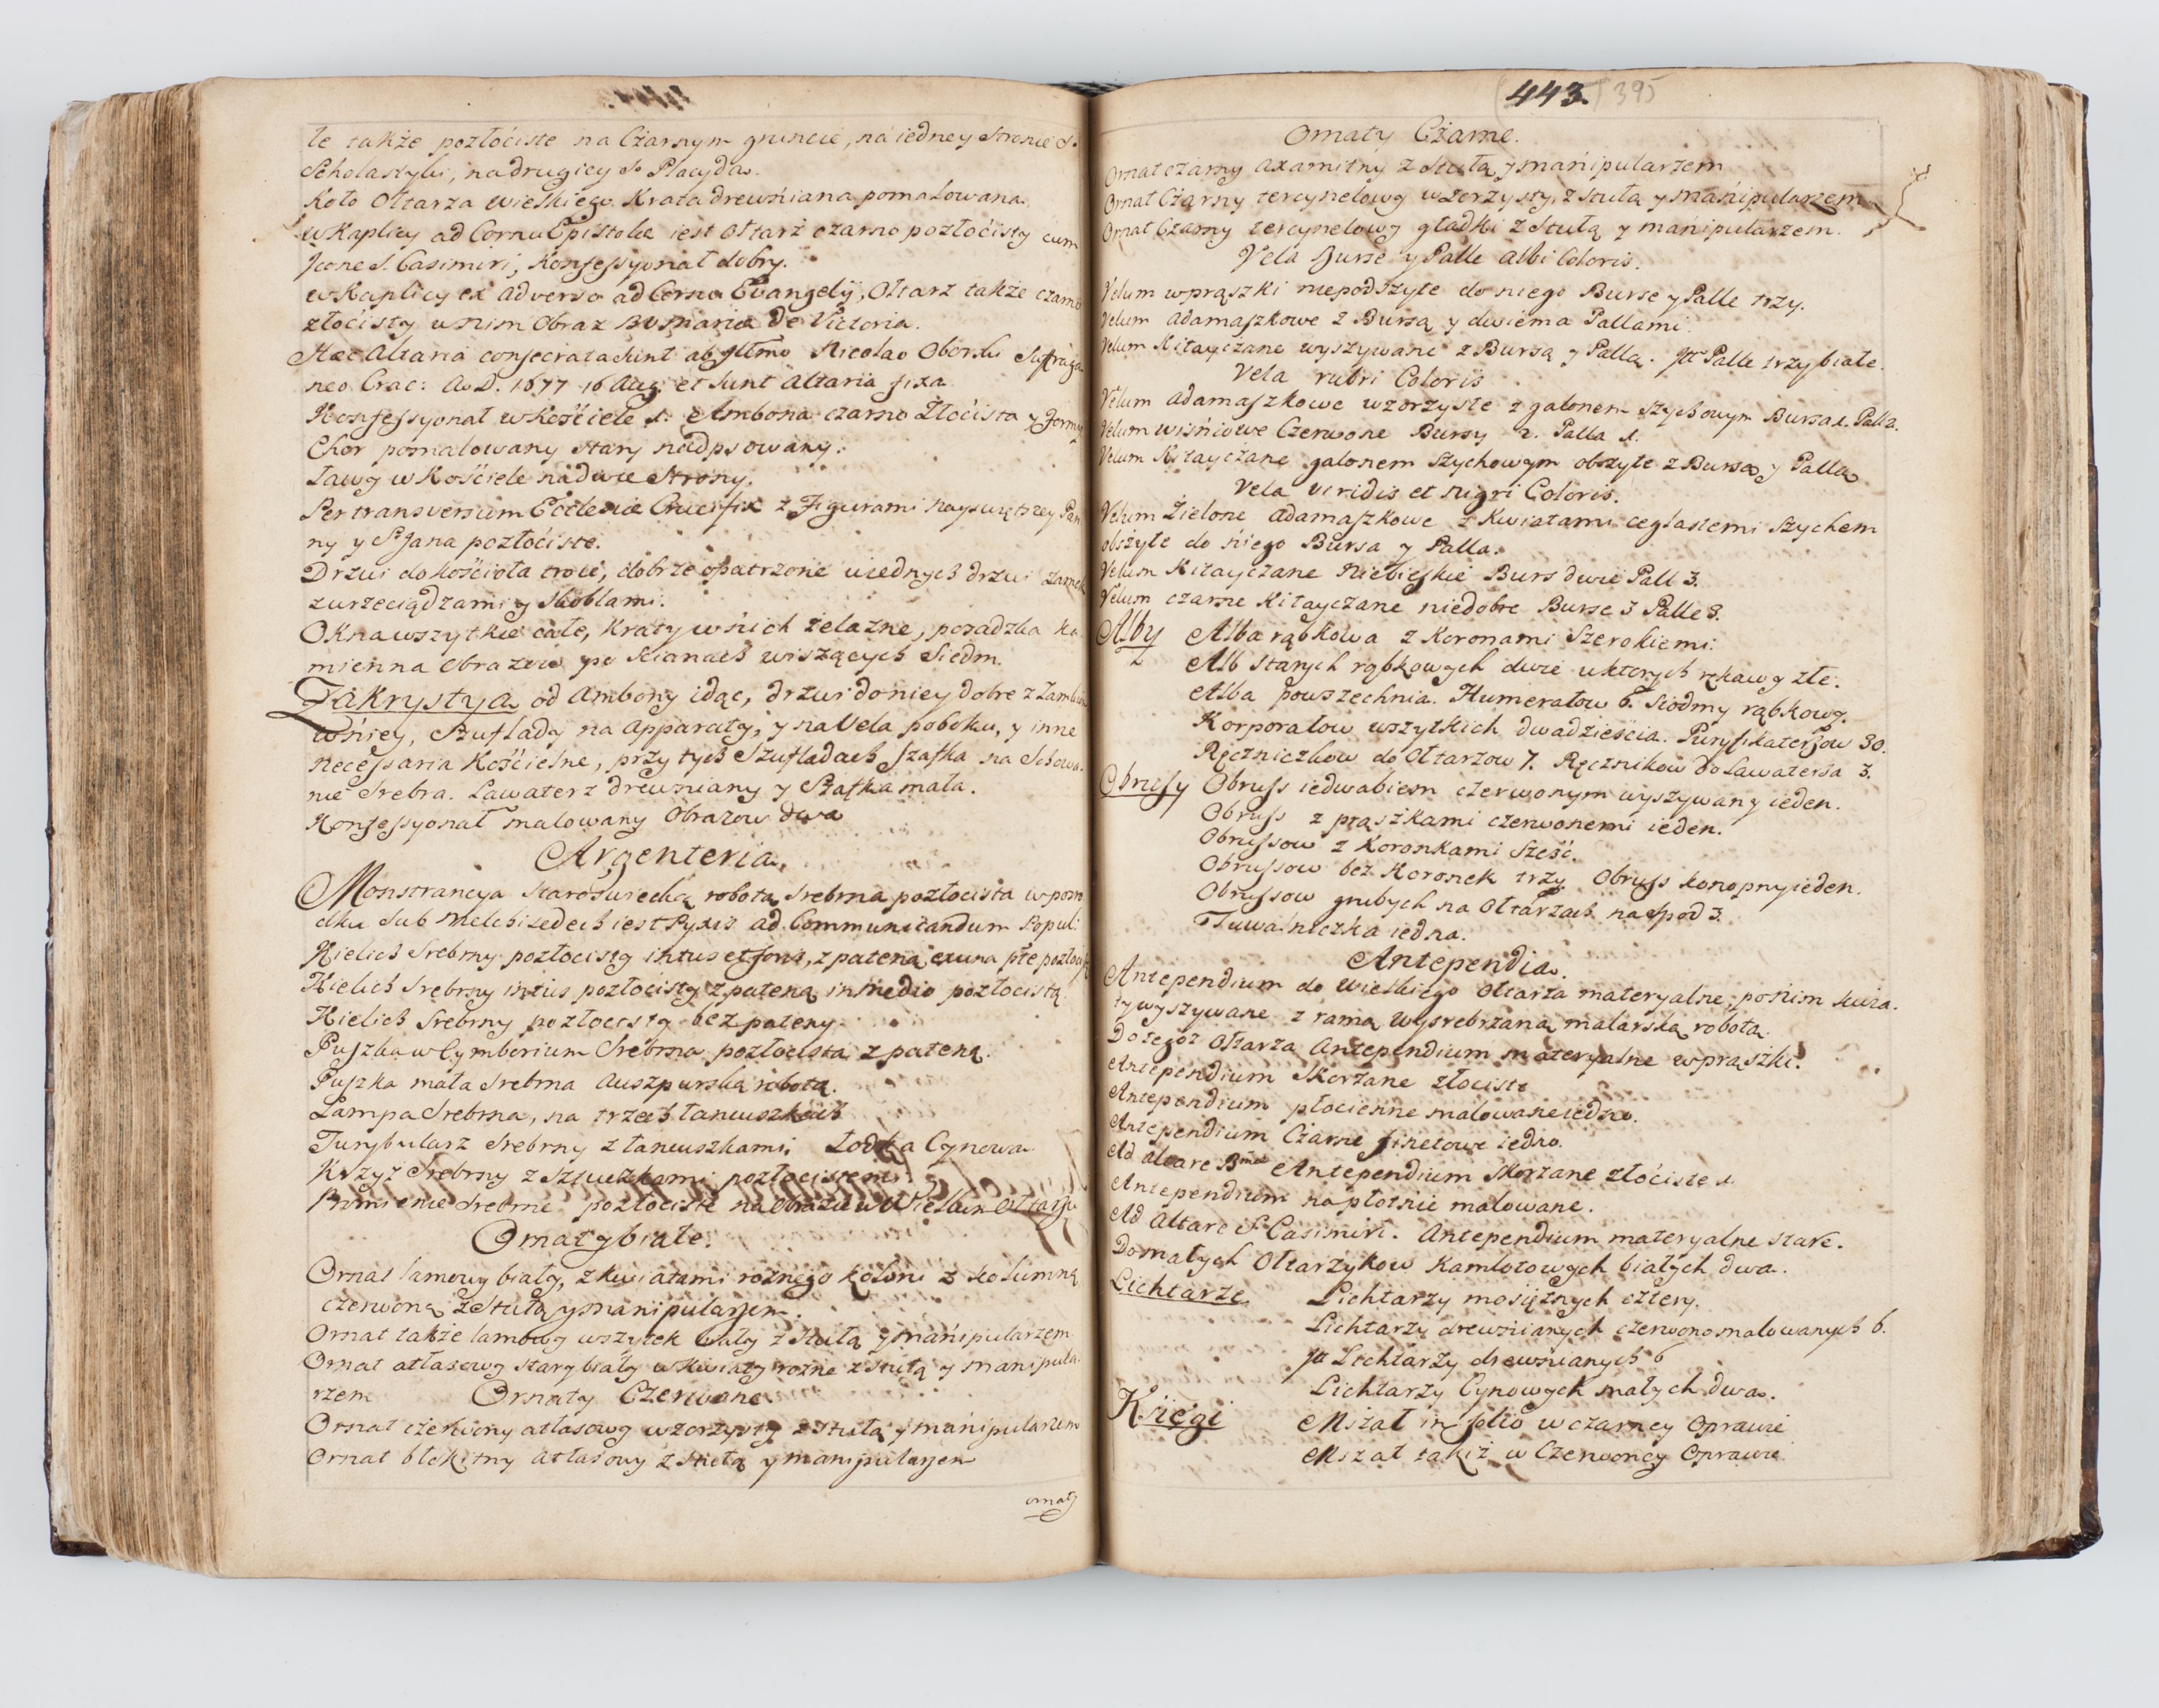 le także pozłóciste na Czarnym gruncie, na iedney Stronie S.
Scholastyki, na drugiey S. Placyda.
Koło Ołtarza wielkiego Krata drewniana pomalowana.
w Kaplicy ad Cornu Epistolae iest Ołtarz czarno pozłócisty cum
Icone S. Casimiri, Konfessyonał dobry.
w Kaplicy ex adverso ad Cornu Evangelÿ, Ołtarz także czarno
złócisty w nim Obraz BV Maria De Victoria.
Haec Altaria consecrata sunt ab Illmo Nicolao Oborski Sufraga
neo Crac: A.D. 1677 16 Aug: et sunt Altaria fixa
Konfessyonał w Kościele 1. Ambona czarno Złócista y formy
Chor pomalowany stary nadpsowany.
Ławy w Kościele na dwie strony.
Per transversum Ecclesiae Crucifix z Figurami Nayswiętszey Pan
ny y S. Jana pozłóciste.
Drzwi do kościoła troie, dobrze opatrzone u iednych drzwi zamek
z wrzeciądzami y skoblami.
Okna wszytkie całe, Kraty w nich żelazne, posadzka ka
mienna Obrazow po Scianach wiszących Siedm.
Zakrystya od Ambony idąc, drzwi do niey dobre z Zamkiem
w niey, Szuflady na Apparaty, y na Vela poboku, y inne
necessaria Kościelne, przy tych Szufladach Szafka na Schowa-
nie Srebra. Lawaterz drewniany y Szafka mała.
Konfessyonał malowany Obrazow dwa
Argenteria.
Monstrancya Staroswiecką robotą Srebrna pozłocista w posro
dku sub Melchisedech iest Pyxis ad Communicandum Popul:
Kielich Srebrny pozłocisty intus et foris, z pateną ex una pte pozłoc
Kielich Srebrny intus pozłocisty z pateną in medio pozłocistą.
Kielich Srebrny pozłocisty bez pateny.
Puszka w Cymborium Srebrna pozłocista z pateną.
Puszka mała Srebrna Auszpurską robotą.
Lampa Srebrna, na trzech łancuszkach
Turybularz Srebrny z łancuszkami. Łodka Cynowa
Krzyż Srebrny z sztuczkami pozłocistemi
Promienie Srebrne pozłociste na Obrazie w Wielkim Ołtarzu
Ornaty białe.
Ornat lamowy biały, z kwiatami rożnego koloru z kolumną
czerwoną z Stułą y manipularzem.
Ornat także lamowy wszytek biały z Stułą y manipularzem
Ornat atłasowy stary biały w kwiaty rożne z stułą y manipula-
rzem Ornaty Czerwone
Ornat czerwony atłasowy wzorzysty z stułą y manipularzem
Ornat błękitny Atłasowy z stułą y manipularzem
ornaty
443. 395
Ornaty Czarne.
Ornat czarny Axamitny z Stułą y manipularzem
Ornat Czarny tercynelowy wzorzysty, z stułą y manipularzem
Ornat Czarny tercynelowy gładki z Stułą y manipularzem.
Vela Bursae y Palle Albi Coloris.
Velum w prąszki niepodszyte do niego Bursę y Palle trzy.
Velum Adamaszkowe z Bursą y dwiema Pallami.
Velum Kitayczane wyszywane z Bursą y Pallą. Itt Palle trzy białe.
Vela rubri Coloris
Velum Adamaszkowe wzorzyste z galonem szychowym Bursa 1. Pall 2.
Velum wiśniowe Czerwone Bursy 2. Palla 1.
Velum Kitayczane galonem szychowym obszyte z Bursą y Pallą.
Vela viridis et nigri Coloris.
Velum Zielone Adamaszkowe z Kwiatami ceglastemi szychem
obszyte do niego Bursa y Palla.
Velum Kitayczane Niebieskie Burs dwie Pall 3.
Velum czarne Kitayczane niedobre Burse 3 Palle 3.
Alby Alba rąbkowa z Koronami Szerokiemi.
Alb starych rąbkowych dwie u ktorych rękawy złe.
Alba powszechnia. Humerałow 6. Siodmy rąbkowy.
Korporałow wszytkich dwadzieścia. Puryfikaterzow 30.
Ręczniczkow do Ołtarzow 7. Ręcznikow do Lawaterza 3.
Obrusy Obruss iedwabiem czerwonym wyszywany ieden.
Obruss z prąszkami czerwonemi ieden.
Obrussow z Koronkami Sześć.
Obrussow bez Koronek trzy Obruss konopny ieden.
Obrussow grubych na Ołtarzach na spod 3.
Tuwalniczka iedna.
Antependia.
Antependium do Wielkiego Ołtarza materyalne, po nim kwia-
ty wyszywane z ramą wysrebrzaną malarską robotą.
Do tegoż Ołtarza Antependium materyalne w prąszki.
Antependium Skorzane złociste
Antependium płocienne malowane iedno.
Antependium Czarne finetowe iedno.
Ad altare Bmae Antependium Skorzane złóciste 1.
Antependium na płótnie malowane.
Ad Altare S. Casimiri. Antependium materyalne stare.
Do małych Ołtarzykow Kamlotowych białych dwa.
Lichtarze Lichtarzy mosiężnych cztery.
Lichtarzy drewnianych czerwono malowanych 6.
Itt Lichtarzy drewnianych 6
Lichtarzy Cynowych małych dwa.
Księgi Mszał in folio w czarney Oprawie
Mszał takiż w Czerwoney Oprawie